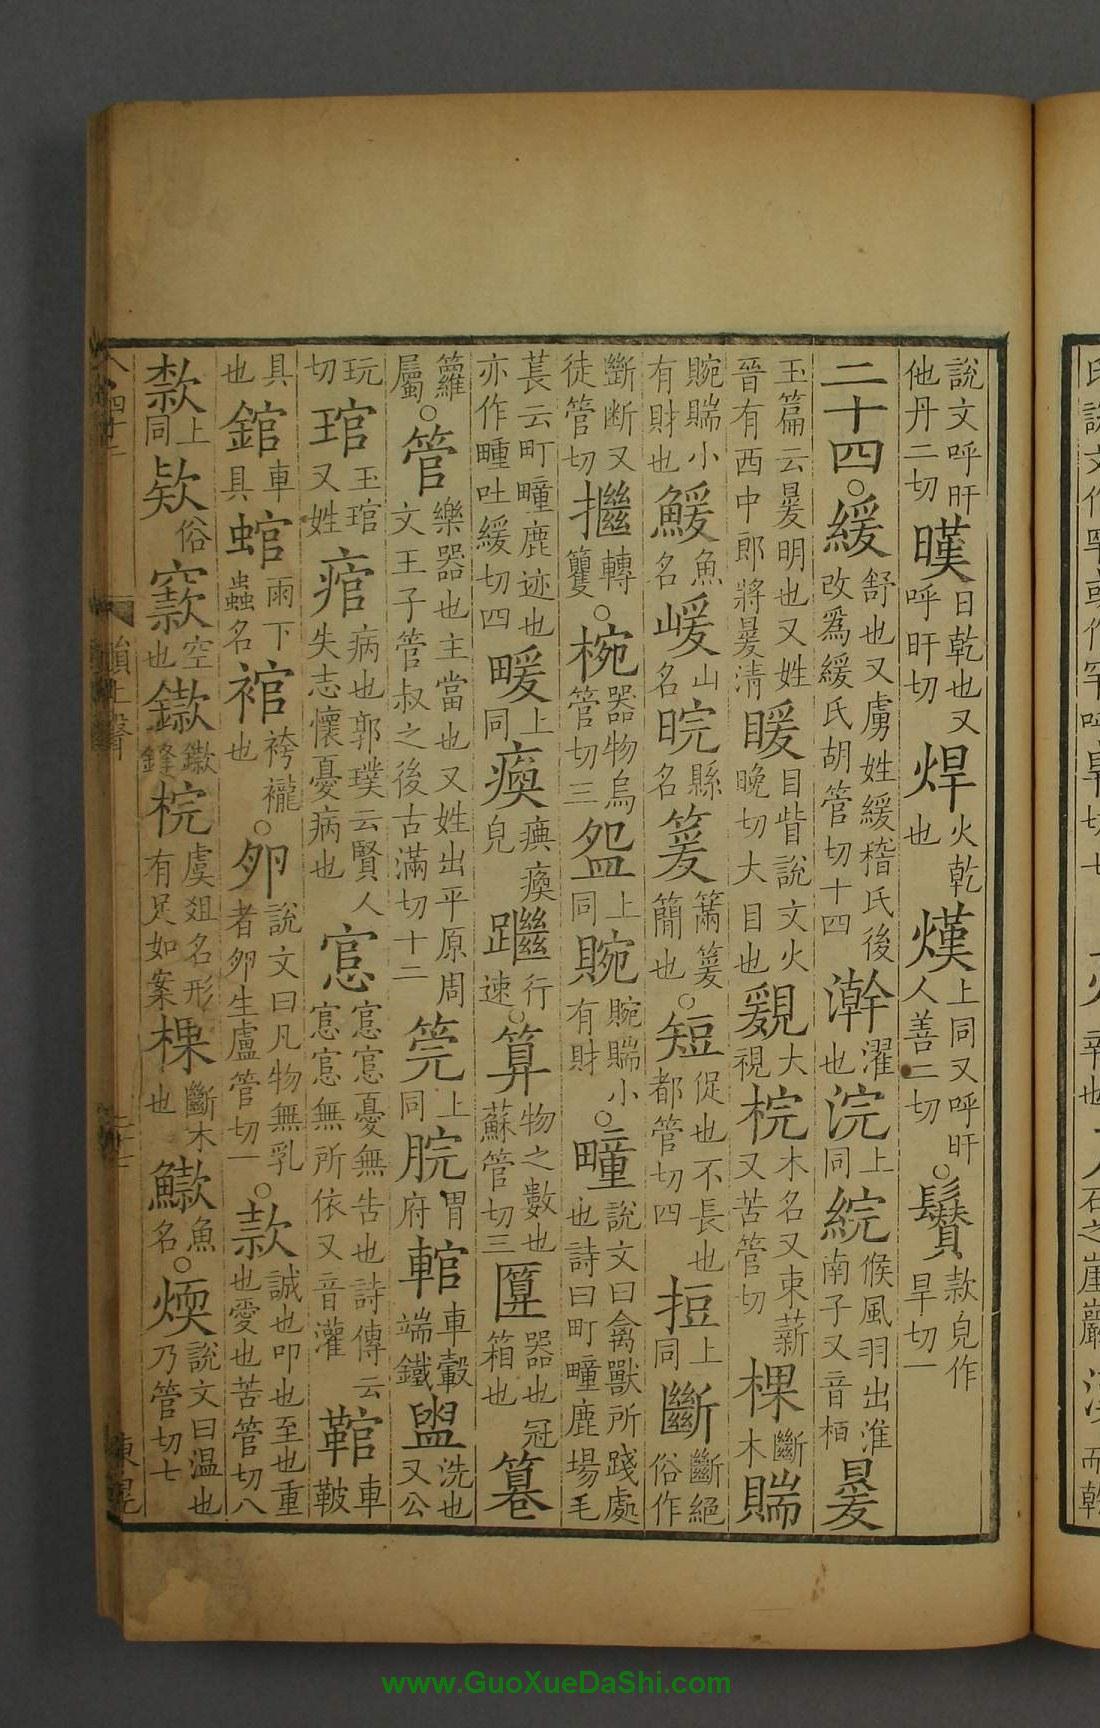 說文呼旰他丹二切暵日乾也又呼旰切焊火乾也熯上同又呼旰人善二切○鬢款皃作旱切一
二十四○緩舒也又虜姓緩稽氏後改爲緩氏胡管切十四澣濯也浣上同綄候風羽出淮南子又音桓㬊
玉篇云㬊明也又姓晉有西中郎將㬊清睆目眥說文火晚切大目也䚕大視梡木名又束薪又苦管切棵斷木䝎
賟䝎小有財也鰀魚名㟶山名晥縣名䈠䉤䈠簡也○短促也不長也都管切四𢭃上同斷斷絕俗作
斷断又徒管切㩁轉籰○椀器物烏管切三盌上同䝹䝹䝎小有財○疃說文曰禽獸所踐處也詩曰町疃鹿場毛
萇云町疃鹿迹也亦作畽吐緩切四暖上同瘓㾫瘓皃躖行速○算物之數也蘇管切三匴器也冠箱也篹
籮屬○管樂器也主當也又姓出平原周文王子管叔之後古滿切十二筦上同脘胃府輨車轂端鐵盥洗也又公
玩切琯玉琯又姓痯病也郭璞云賢人失志懷憂病也悹悹悹憂無告也詩傳云悹悹無所依又音灌䩪車鞁
具也錧車具䗆雨下蟲名䘾袴襱也○卵說文曰凡物無乳者卵生盧管切一○款誠也叩也至也重也愛也苦管切八
㯘上同欵俗窾空也鏉鏉鋒梡虞爼名形有足如案棵斷木也鱌魚名○㬉說文曰温也乃管切七
四十二
韻上聲
二十三
陳晃
氏說文作
石之崖巖
而乾
www.GuoXueDaShi.com